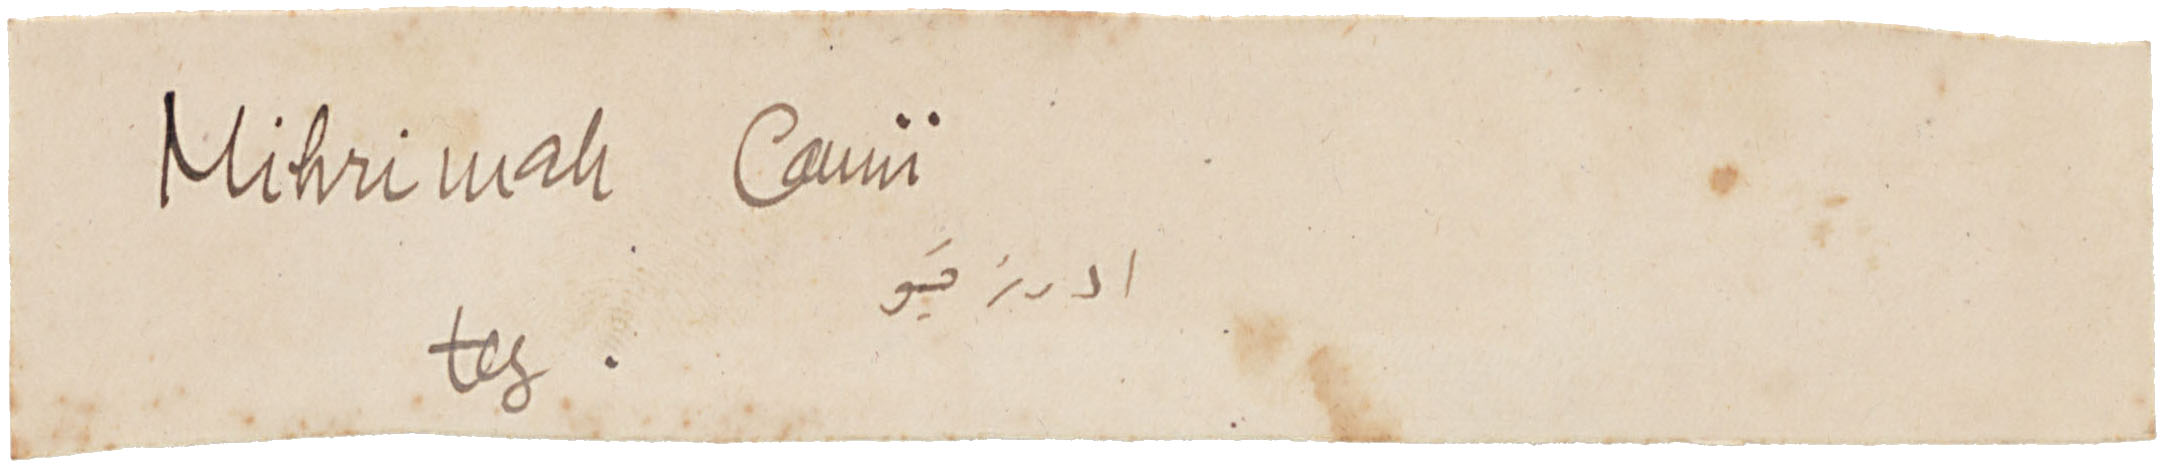 Mihrimah Camii
ادرنه قپو